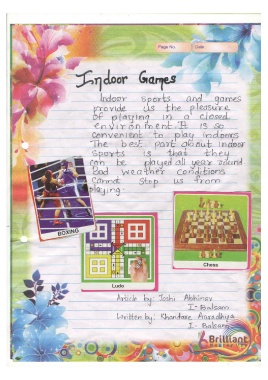 Page No.
Date
Indoor Games
Indoor sports and games
provide us the pleasure
of playing in a closed
environment. It is so
convenient to play indoors
The best part about indoor
sports is that they
can be played all year round
bad weather conditions
cannot stop us from
playing.
BOXING
Ludo
Chess
Article by: Joshi Abhinav
I-Balsam
Written by: Khandare Aaradhya
I-Balsam
Brilliant